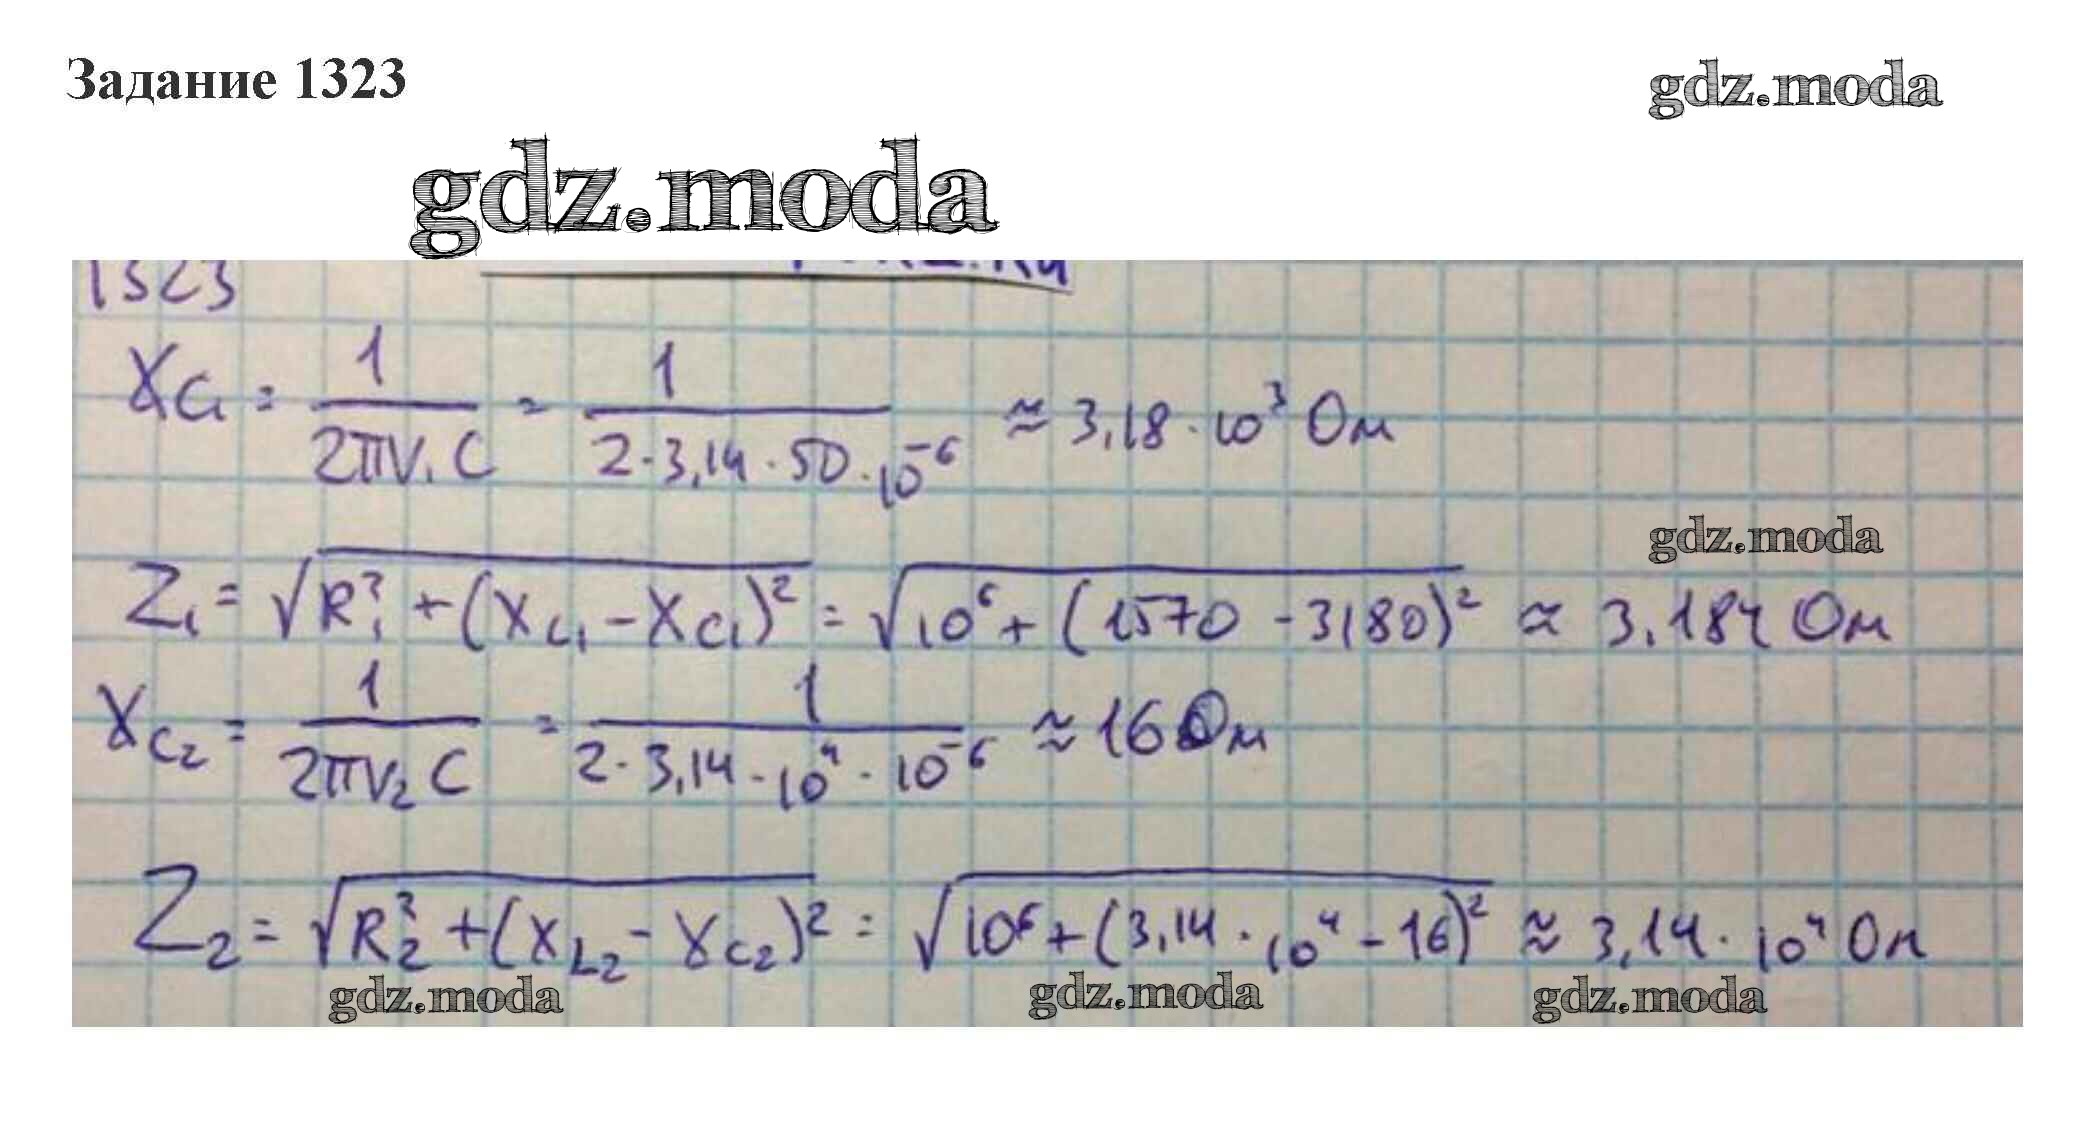 Задание 1323
gdz.moda
gdz.moda
1323
X_C1 = 1 / (2πν₁C) = 1 / (2·3,14·50·10⁻⁶) ≈ 3,18·10³ Ом
gdz.moda
Z₁ = √(R₁² + (X_L1 − X_C1)²) = √(10⁶ + (1570 − 3180)²) ≈ 3.184 Ом
X_C2 = 1 / (2πν₂C) = 1 / (2·3,14·10⁴·10⁻⁶) ≈ 16 Ом
Z₂ = √(R₂² + (X_L2 − X_C2)²) = √(10⁶ + (3,14·10⁴ − 16)²) ≈ 3,14·10⁴ Ом
gdz.moda gdz.moda gdz.moda